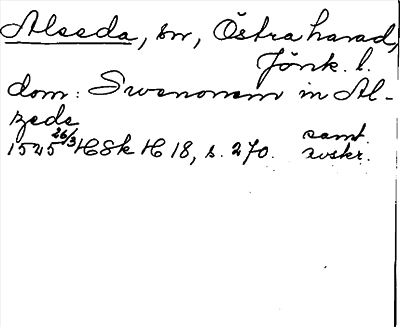 Alseda, sn, Östra härad,
Jönk. l.
dom: Swenonem in Al-
zeda
1525 26/3 HSk H 18, s. 270. samt. avskr.